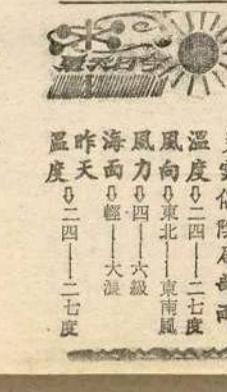 今日天氣
溫度⇩二四——二七度
風向⇩東北——東南風
風力⇩四——六級
海面⇩輕——大浪
昨天
溫度⇩二四——二七度